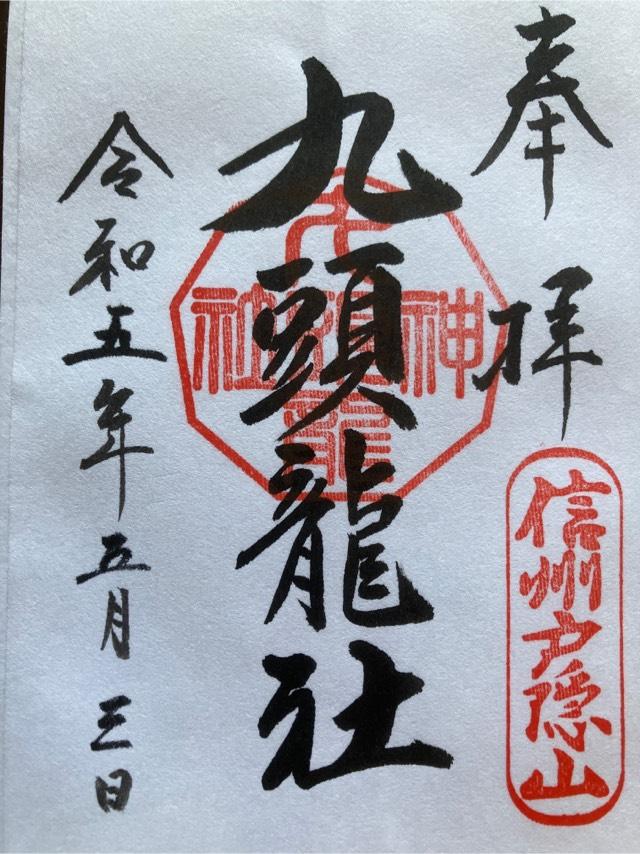 奉拝
信州戸隠山
九頭龍社
九頭龍神社
令和五年五月三日